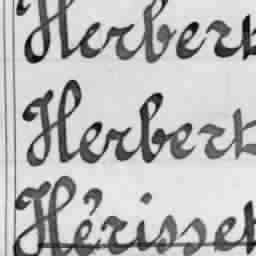 Herbert
Herbert
Hérisset